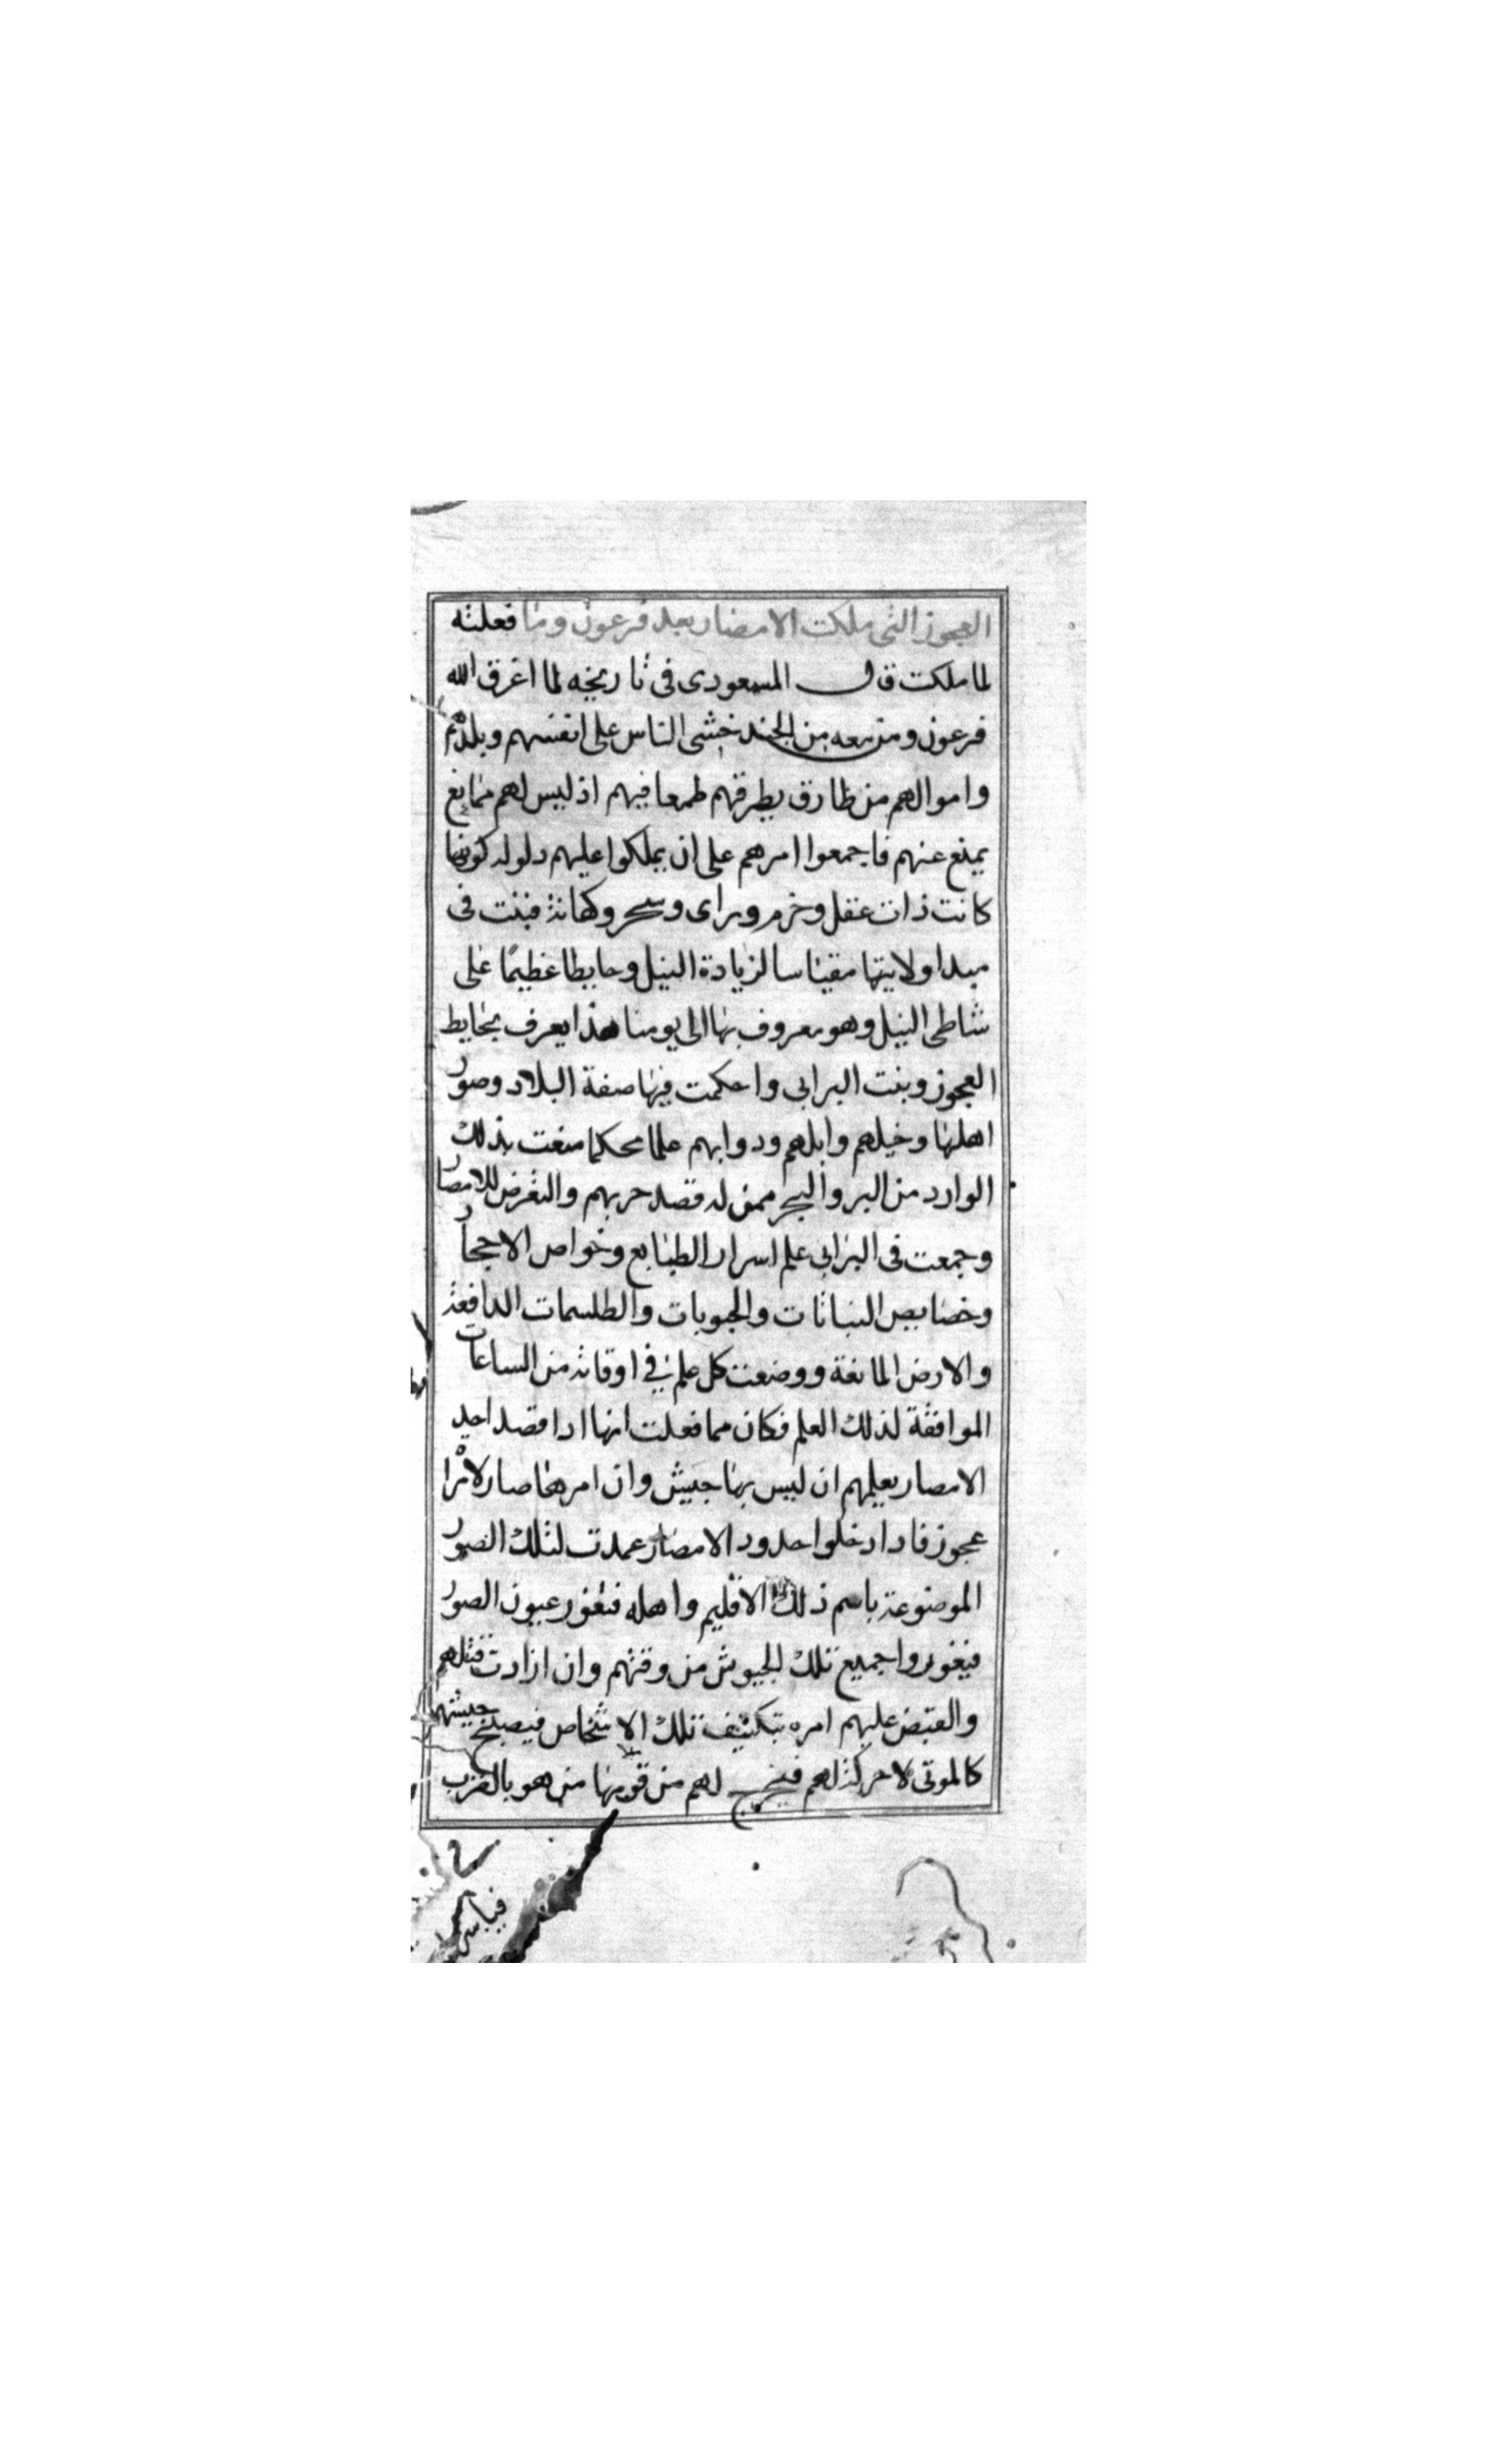 العجوز التى ملكت الامصار بعد فرعون وما فعلته
لما ملكت قال المسعودى فى تاريخه لما اغرق الله
فرعون ومن معه من الجند خشى الناس على انفسهم وبلدهم
واموالهم من طارق يطرقهم طمعا فيهم اذ ليس لهم مانع
يمنع عنهم فاجمعوا امرهم على ان يملكوا عليهم دلوله كونها
كانت ذات عقل وخرم وراى وسحر وكهانة فبنت فى
مبدا ولايتها مقياسا لزيادة النيل وحايطا عظيمًا على
شاطى النيل وهو معروف بها الى يومنا هذا يعرف بحايط
العجوز وبنت البرابى واحكمت فيها صفة البلاد وصور
اهلها وخيلهم وابلهم ودوابهم علما محكما منعت بذلك
الوارد من البر والبحر ممن له قصد حربهم والتغرض للامصار
وجمعت فى البرابى علم اسرار الطبايع وخواص الاحجار
وخصايص النباتات والحبوبات والطلسمات الدافعة
والارض المانعة ووضعت كل علم فى اوقاته من الساعات
الموافقة لذلك العلم فكان مما فعلت انها ادا قصد احد
الامصار يعلمهم ان ليس بها جيش وان امرها صار لامراة
عجوز فادا دخلوا حدود الامصار عمدت لتلك الصور
الموضوعة باسم ذلك الاقليم واهله فتغور عيون الصور
فيغوروا جميع تلك الجيوش من وقتهم وان ارادت قتلهم
والقبض عليهم امره بتكثيف تلك الاشخاص فيصبح جيشهم
كالموتى لا حركة لهم فيخرج لهم من قومها من هو بالقرب